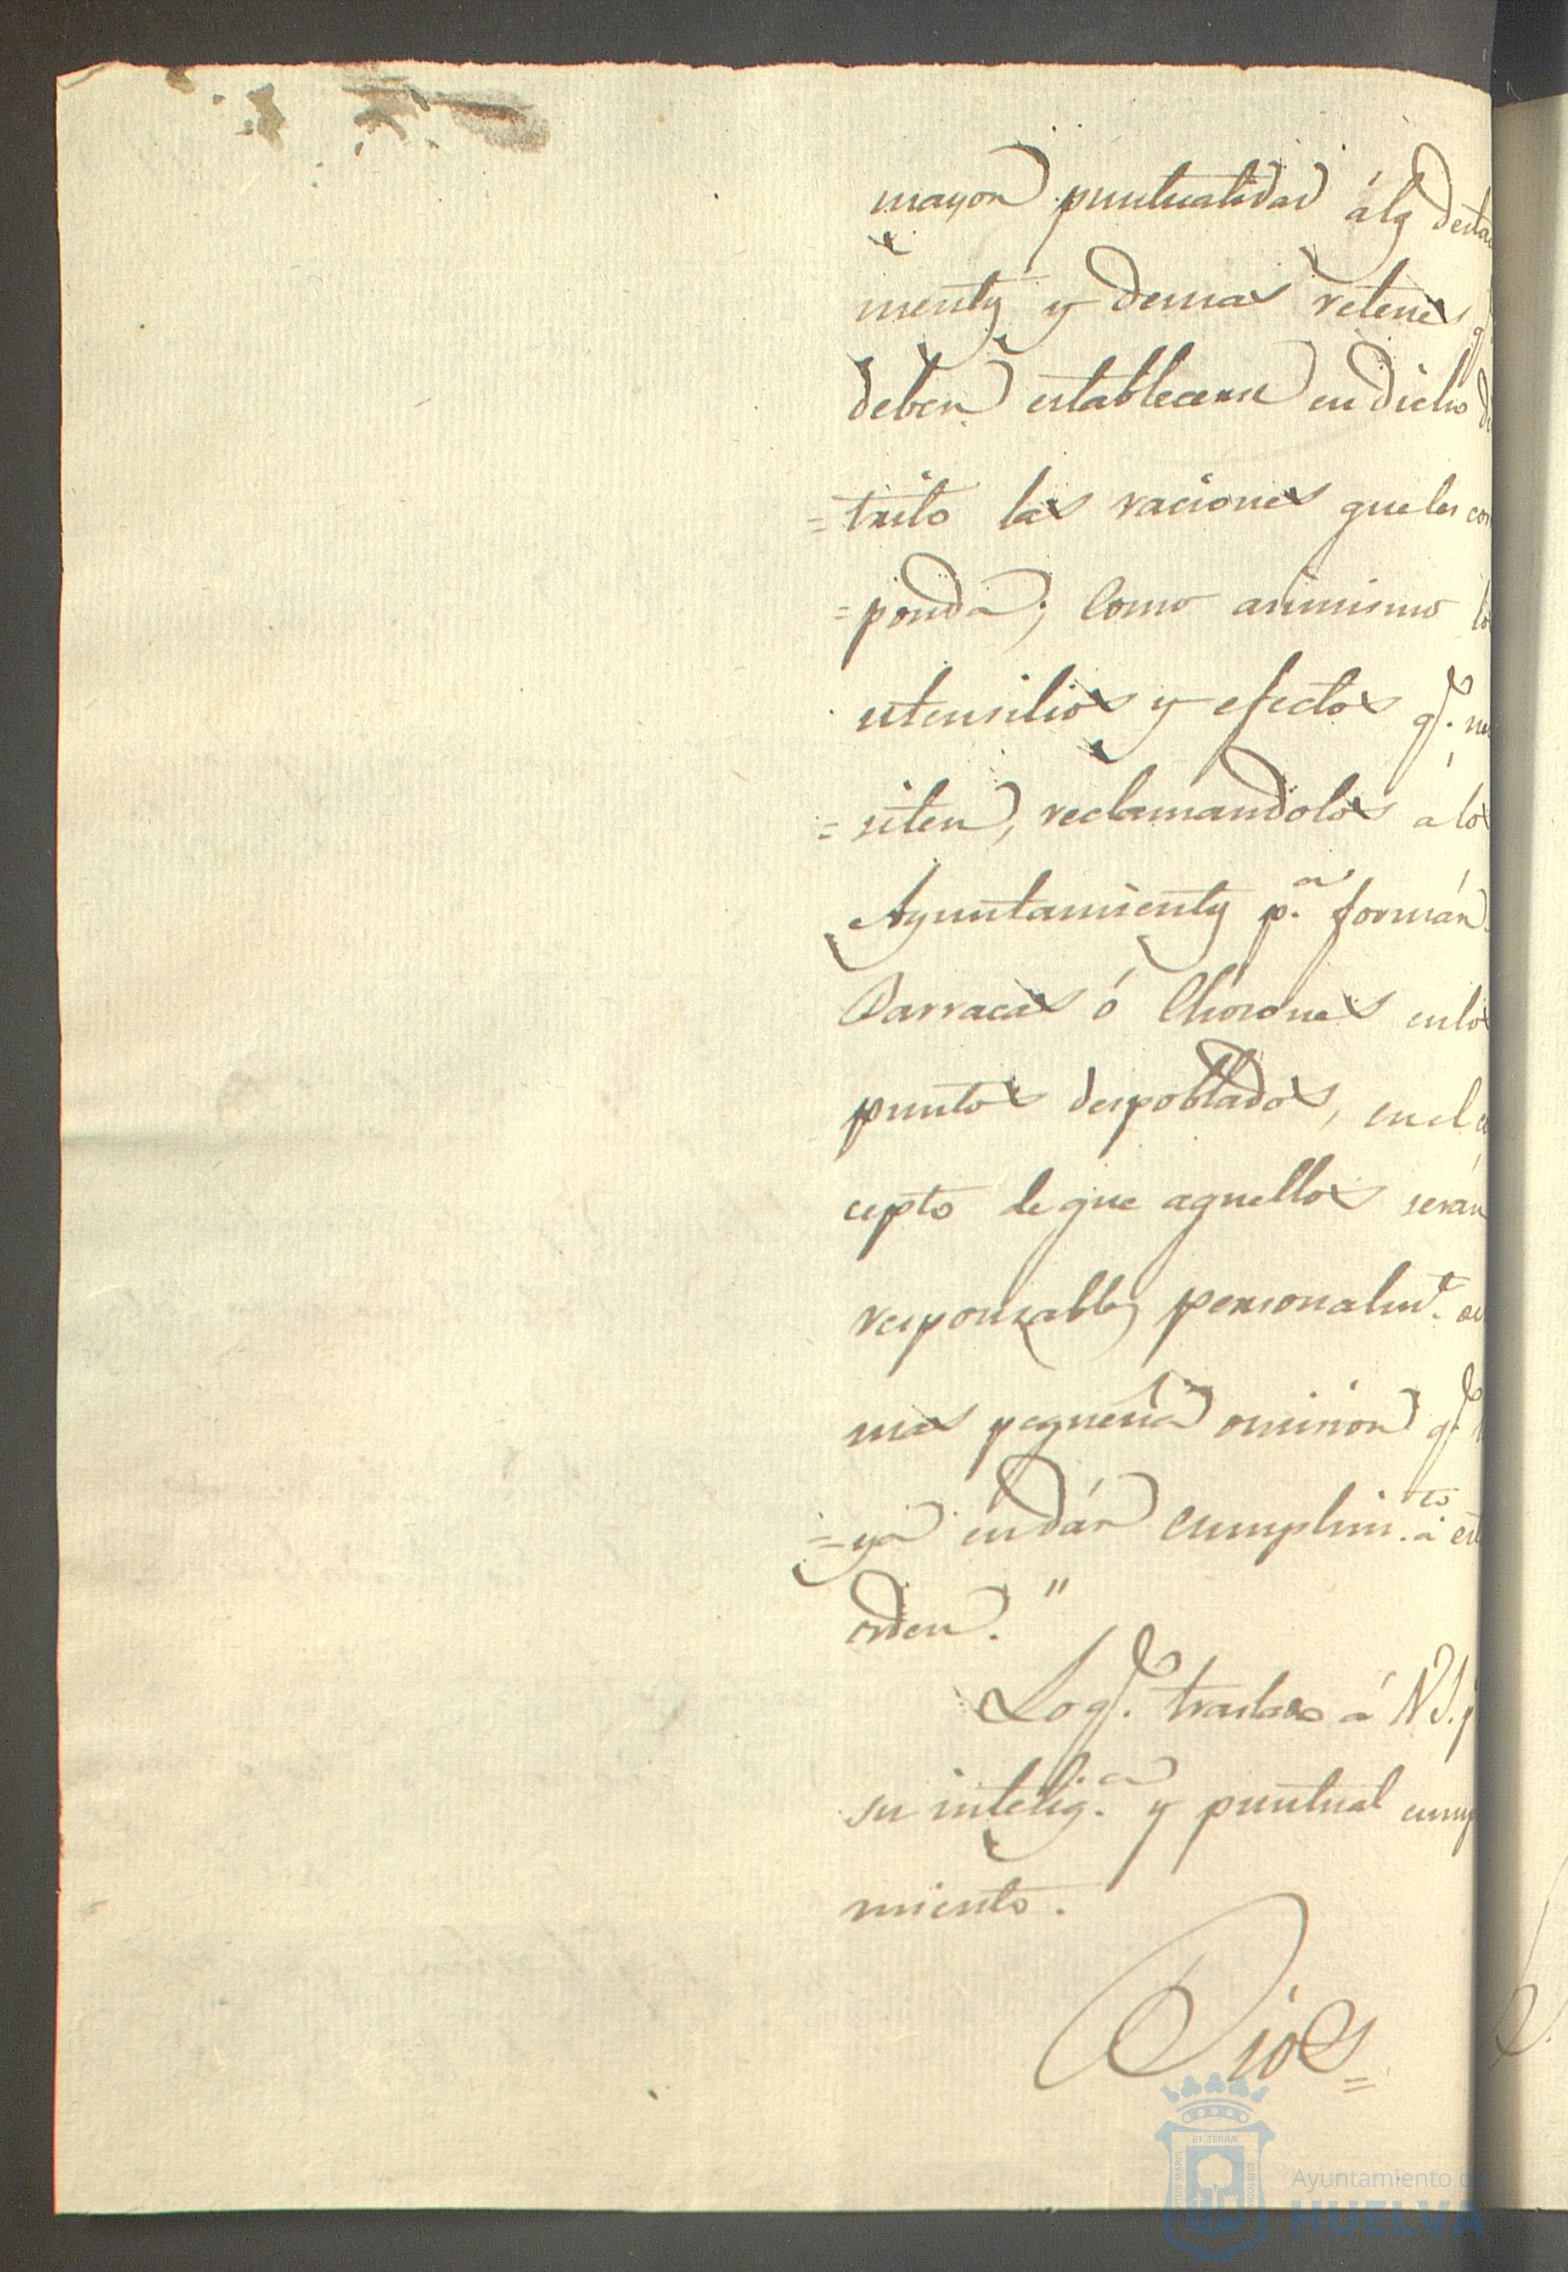 mayor puntualidad á los destaca
mentos y demas retenes q
deben establecerse en dicho di
=trito las raciones que les cor
=ponda; como asimismo lo
utensilios y efectos q.e ne
=siten, reclamandolos a los
Ayuntamientos p.a formár
Barracas ó Chozones en los
puntos despoblados, en el c
cepto de que aquellos serán
responsables personalm.te
mas pequeña omision q.e
=ya en dár cumplim.to á est
orden."
Lo q.e traslado á V.S. p
su intelig.a y puntual cump
miento.
Dios=
ET TERRÆ
MARIS
CUSTODI
Ayuntamiento de
HUELVA